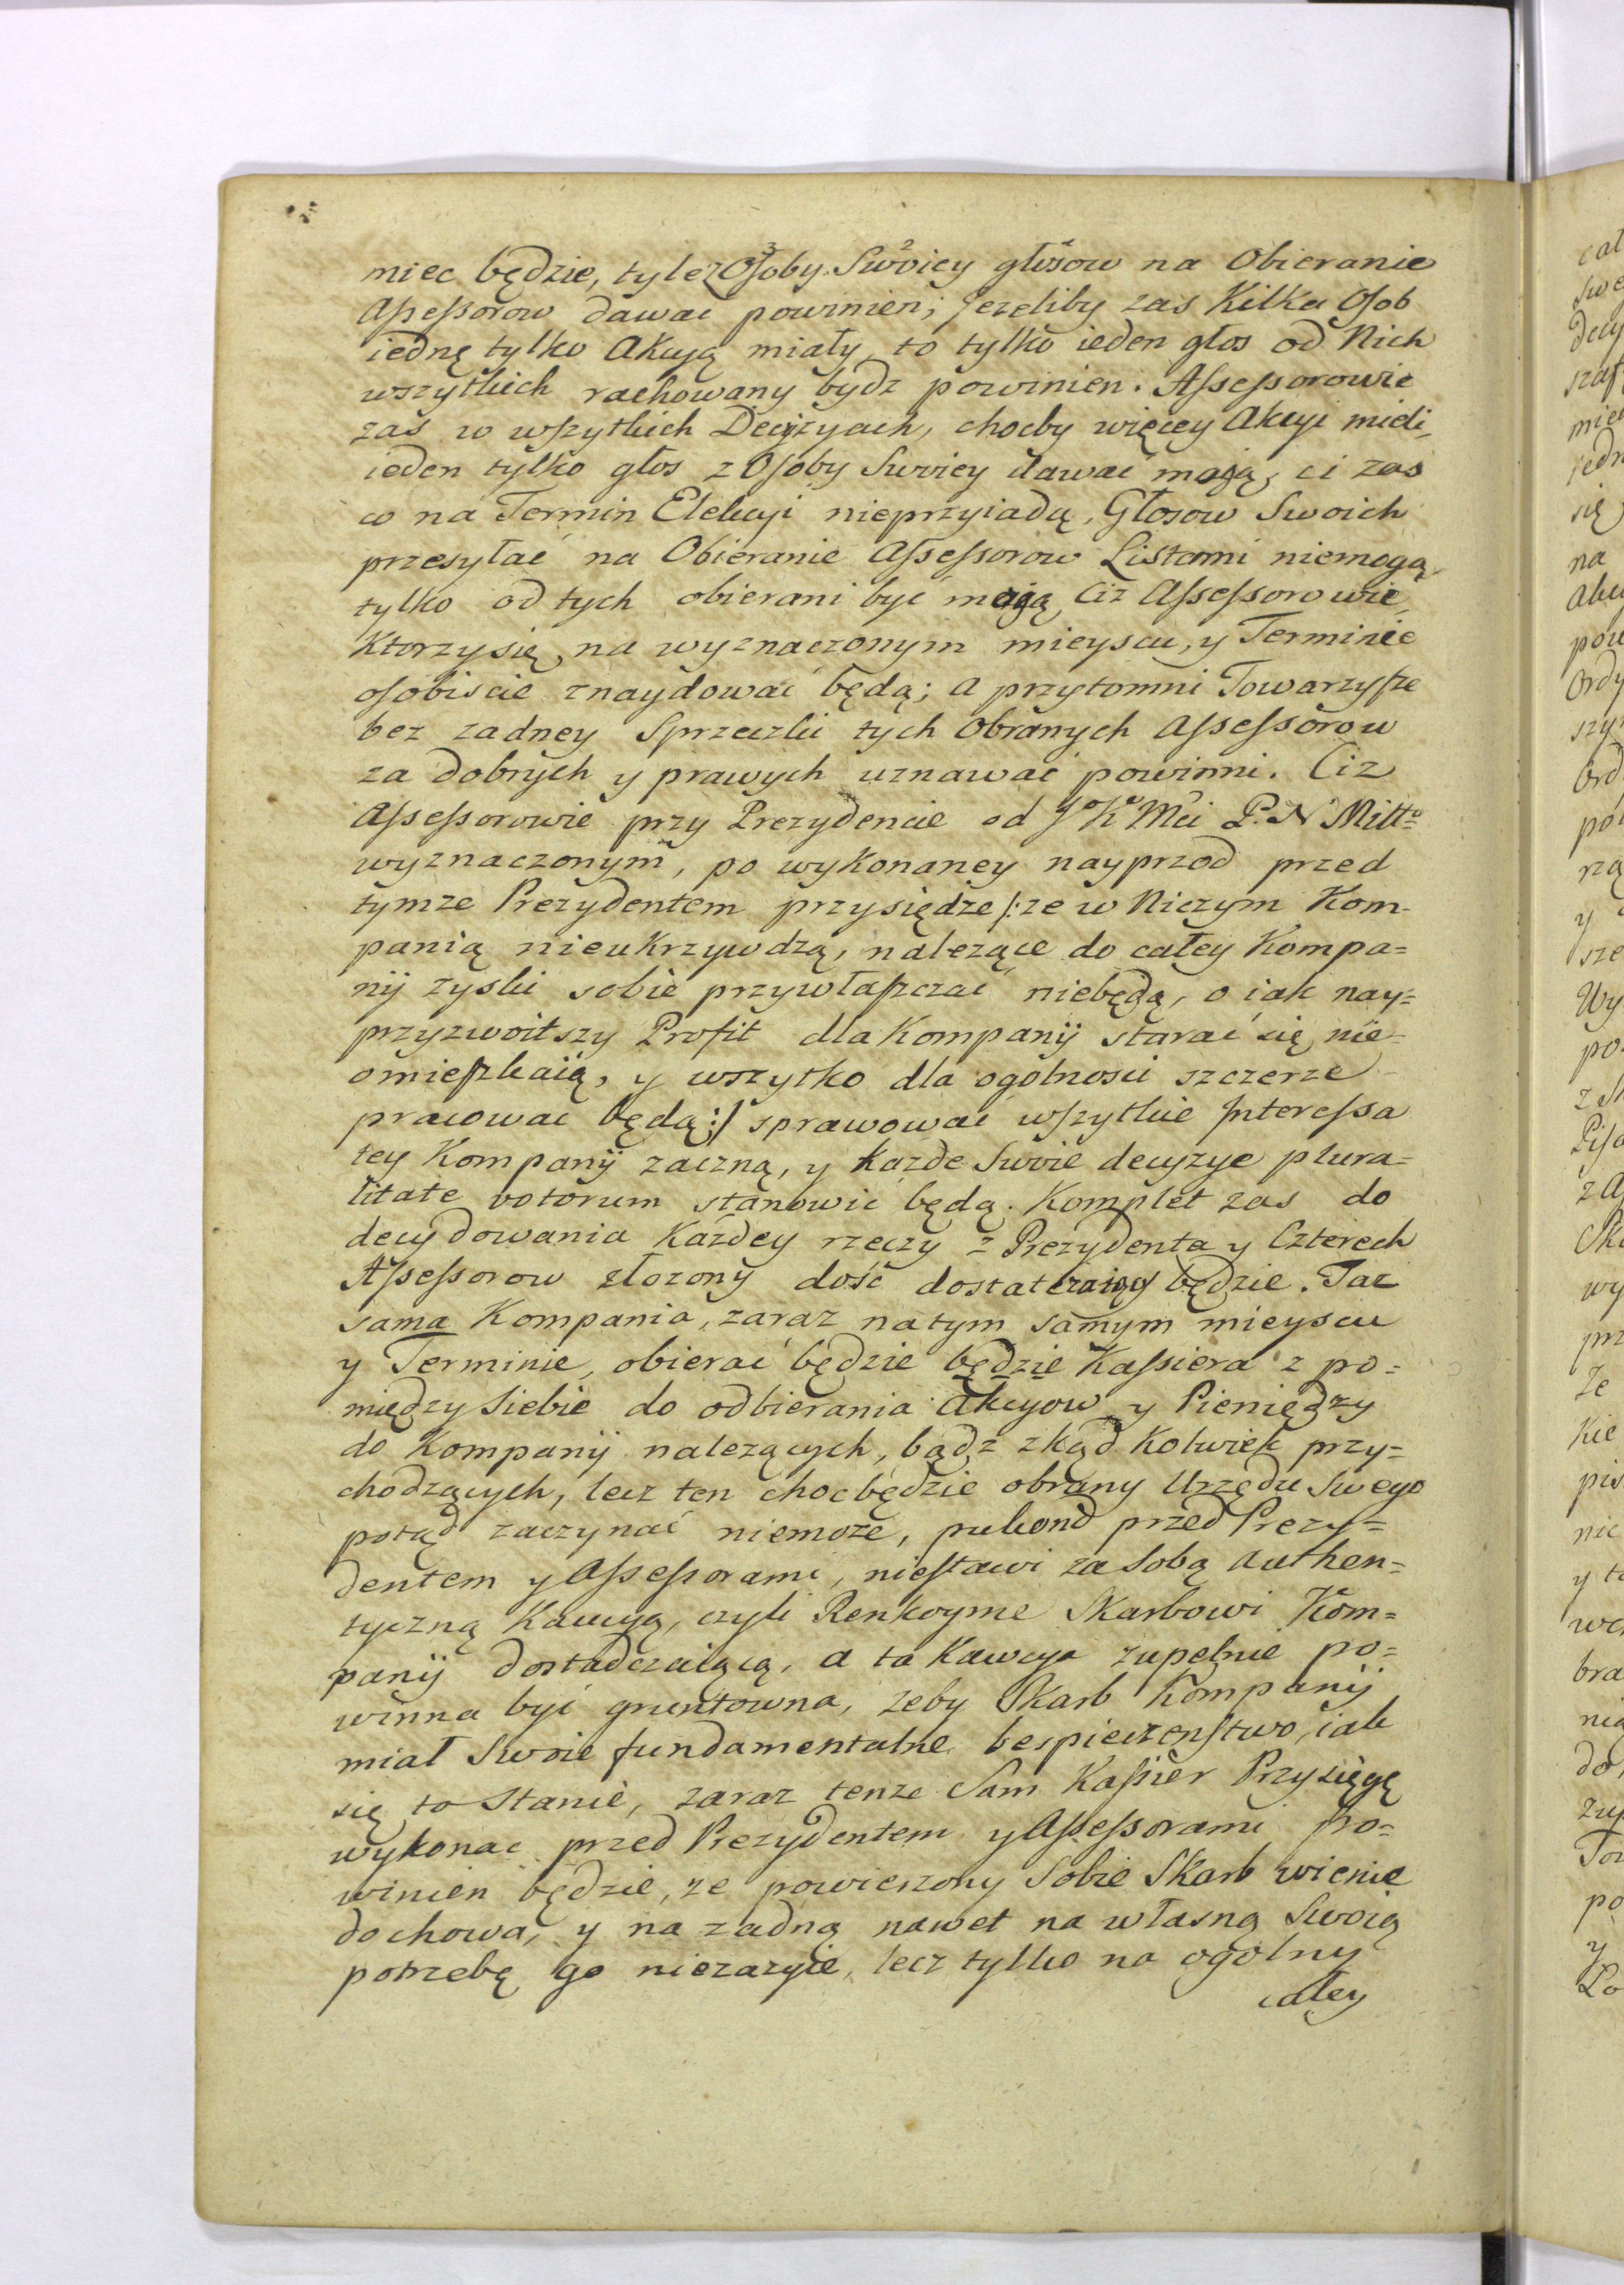 miec będzie, tyle z Osoby Swoiey głosow na Obieranie
Assessorow dawać powinien; Jezeliby zas Kilka Osob
iednę tylko Akcyą miały, to tylko ieden głos od Nich
wszytkich rachowany bydz powinien. Assessorowie
zaś w wszytkich Decyzyach, choćby więcey Akcyi mieli,
ieden tylko głos z Osoby Swoiey dawać mają, ci zas
co na Termin Elekcyi nieprzyiadą, Głosow Swoich
przesyłać na Obieranie Assessorow Listami niemogą,
tylko od tych obierani być mają Ciż Assessorowie,
Ktorzy się na wyznaczonym mieyscu, y Terminie
osobiscie znaydować będą; a przytomni Towarzysze
bez zadney Sprzeczki tych Obranych Assessorow
za dobrych y prawych uznawać powinni. Ciz
Assessorowie przy Prezydencie od JoKo Mci P. N Mittō
wyznaczonym, po wykonaney nayprzod przed
tymze Prezydentem przysiędze /: ze w Niczym Kom-
panią nieukrzywdzą, nalezące do całey Kompa=
nij zyski sobie przywłaszczać niebędą, o iak nay=
przyzwoitszy Profit dla Kompanij starać się nie-
omieszkaią, y wszytko dla ogolnosci szczerze
pracować będą :/ sprawować wszytkie Interessa
tey Kompanij zaczną, y kazde Swoie decyzye plura=
litate votorum stanowić będą. Komplet zas do
decydowania Każdey rzeczy z Prezydenta y Czterech
Assessorow złozony dość dostatczaiący będzie. Taz
sama Kompania, zaraz na tym samym mieyscu
y Terminie, obierać będzie będzie Kassiera z po=
między Siebie do odbierania Akcyow y Pieniędzy
do Kompanij nalezących, bądź zkąd Kolwiek przy=
chodzących, lecz ten choc będzie obrany Urzędu Swego
potąd zaczynać niemoże, pukond przed Prezy=
dentem y Assessorami, niestawi za Sobą Authen=
tyczną Kaucyą, czyli Renkoyme Skarbowi Kom=
panij dostadczaiącą, a ta Kawcya zupełnie po=
winna być gruntowna, zeby Skarb Kompanij
miał Swoie fundamentalne bespieczenstwo, iak
się to Stanie, zaraz tenze Sam Kassier Przysięgę
wykonac przed Prezydentem y Assessorami po=
winien będzie, ze powierzony Sobie Skarb wiernie
dochowa, y na zadną nawet na własną Swoią
potrzebę go niezazyie, lecz tylko na ogolny
całey